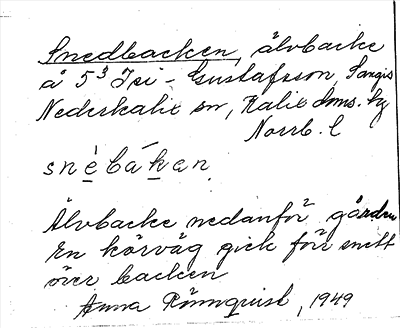 Snedbacken, älvbacke
å 5³ Isi-Gustafsson, Sangis
Nederkalix sn, Kalix doms. hg
Norrb. l
snèbákan
Älvbacke nedanför gården
En körväg gick förr snett
över backen
Anna Rönnquist, 1949